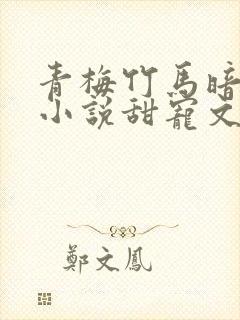 青梅竹馬暗
小說甜寵文
鄭文鳳